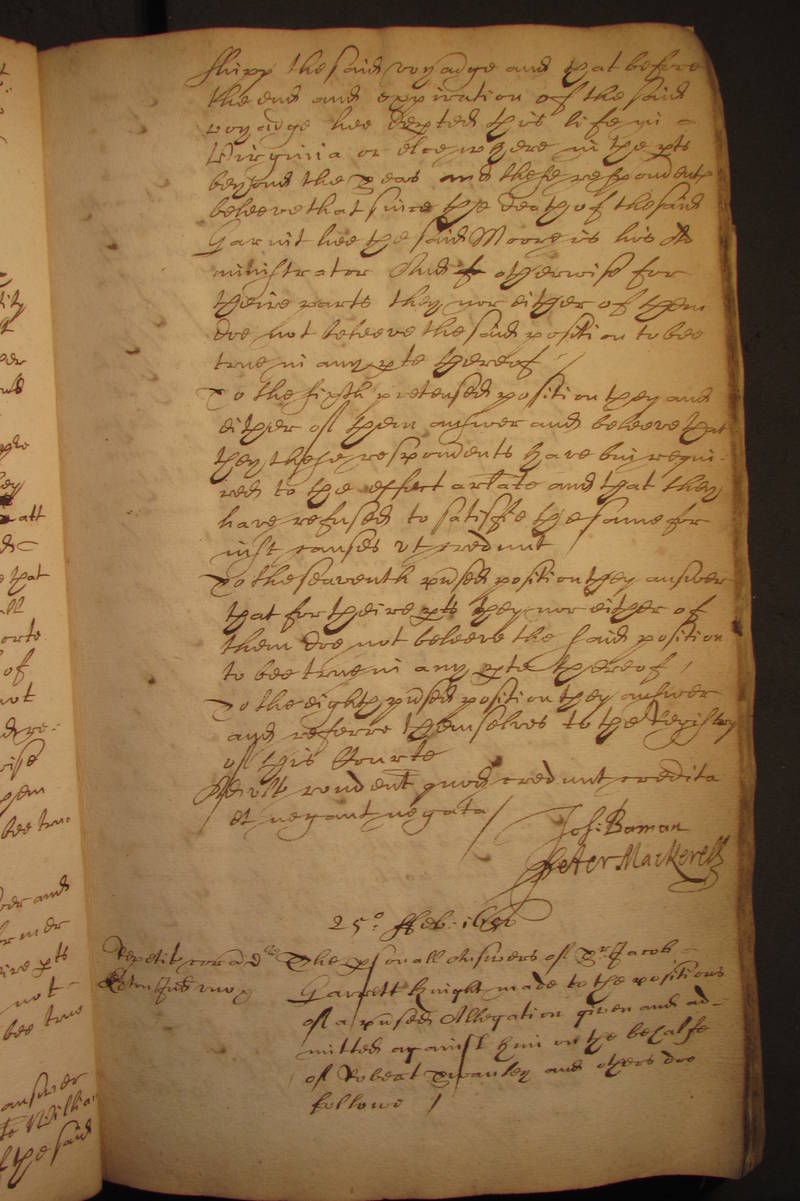 shipp the said voyadge and that before
the end and expiration of the said
voyadge hee depted this life in
Virginia or elcewhere in the pts
beyond the Seas and these respondents
beleeve that since the death of the said
Garnit hee the said Moore is his Ad
ministrator And otherwise for
theire parts they nor either of them
doe not beleeve the said position to bee
true in any pte thereof /
To the sixth pretensed position they and
either of them answer and beleeve that
they these respondents have bin requi-
red to the effect arlate and that they
have refused to satisfie the same for
iust causes ut credunt /
To the seaventh pnsed position they answer
that for theire pts they nor either of
them doe not beleeve the said position
to bee true in any pte thereof /
To the eighth pnsed position they answer
and referre themselves to the Registry
of this Courte
Ad ult rondent quod credunt credita
et negant negata /
Joh: Boman
Peter Mackerell
25o: Feb: 1650
Repetit cora d
The psonall Answers of Sr. Jacob
Garrett Knight made to the positions
of a pnsed Allegation given and ad-
mitted against him on the behalfe
of Robert Swanley and others doe
followe /
tity
att
e that
all
orte
of
not
d re-:
wise
them
bee true
and
former
eire pts
not -
bee true
answer
Willia
f the said